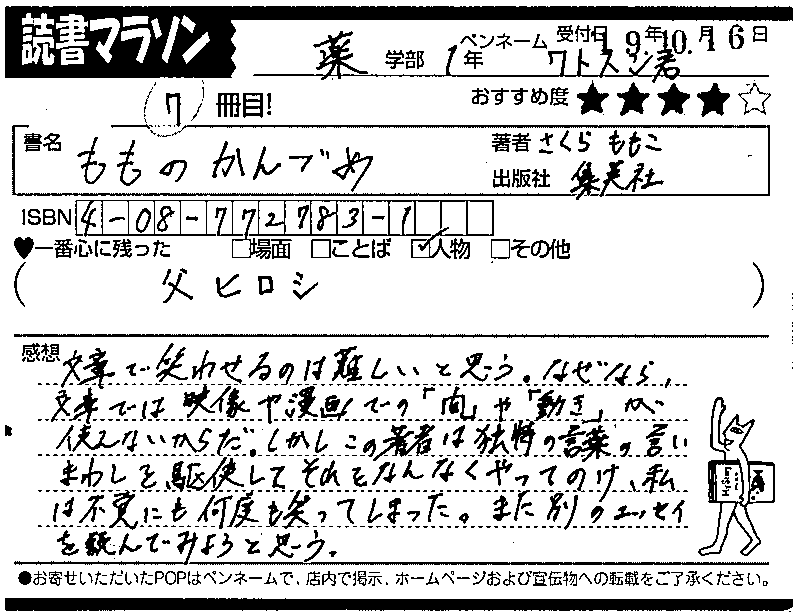 読書マラソン
薬 学部 1年 ペンネーム ワトスン君 受付日 19年10.16日
7 冊目! おすすめ度 ★★★★☆
書名 もものかんづめ
著者 さくら ももこ
出版社 集英社
ISBN 4-08-772783-1
♥一番心に残った □場面 □ことば ☑人物 □その他
( 父 ヒロシ )
感想 文章で笑わせるのは難しいと思う。なぜなら、
文章では映像や漫画での「間」や「動き」が
使えないからだ。しかしこの著者は独特の言葉の言い
まわしを駆使してそれをなんなくやってのけ、私
は不覚にも何度も笑ってしまった。また別のエッセイ
を読んでみようと思う。
●お寄せいただいたPOPはペンネームで、店内で掲示、ホームページおよび宣伝物への転載をご了承ください。